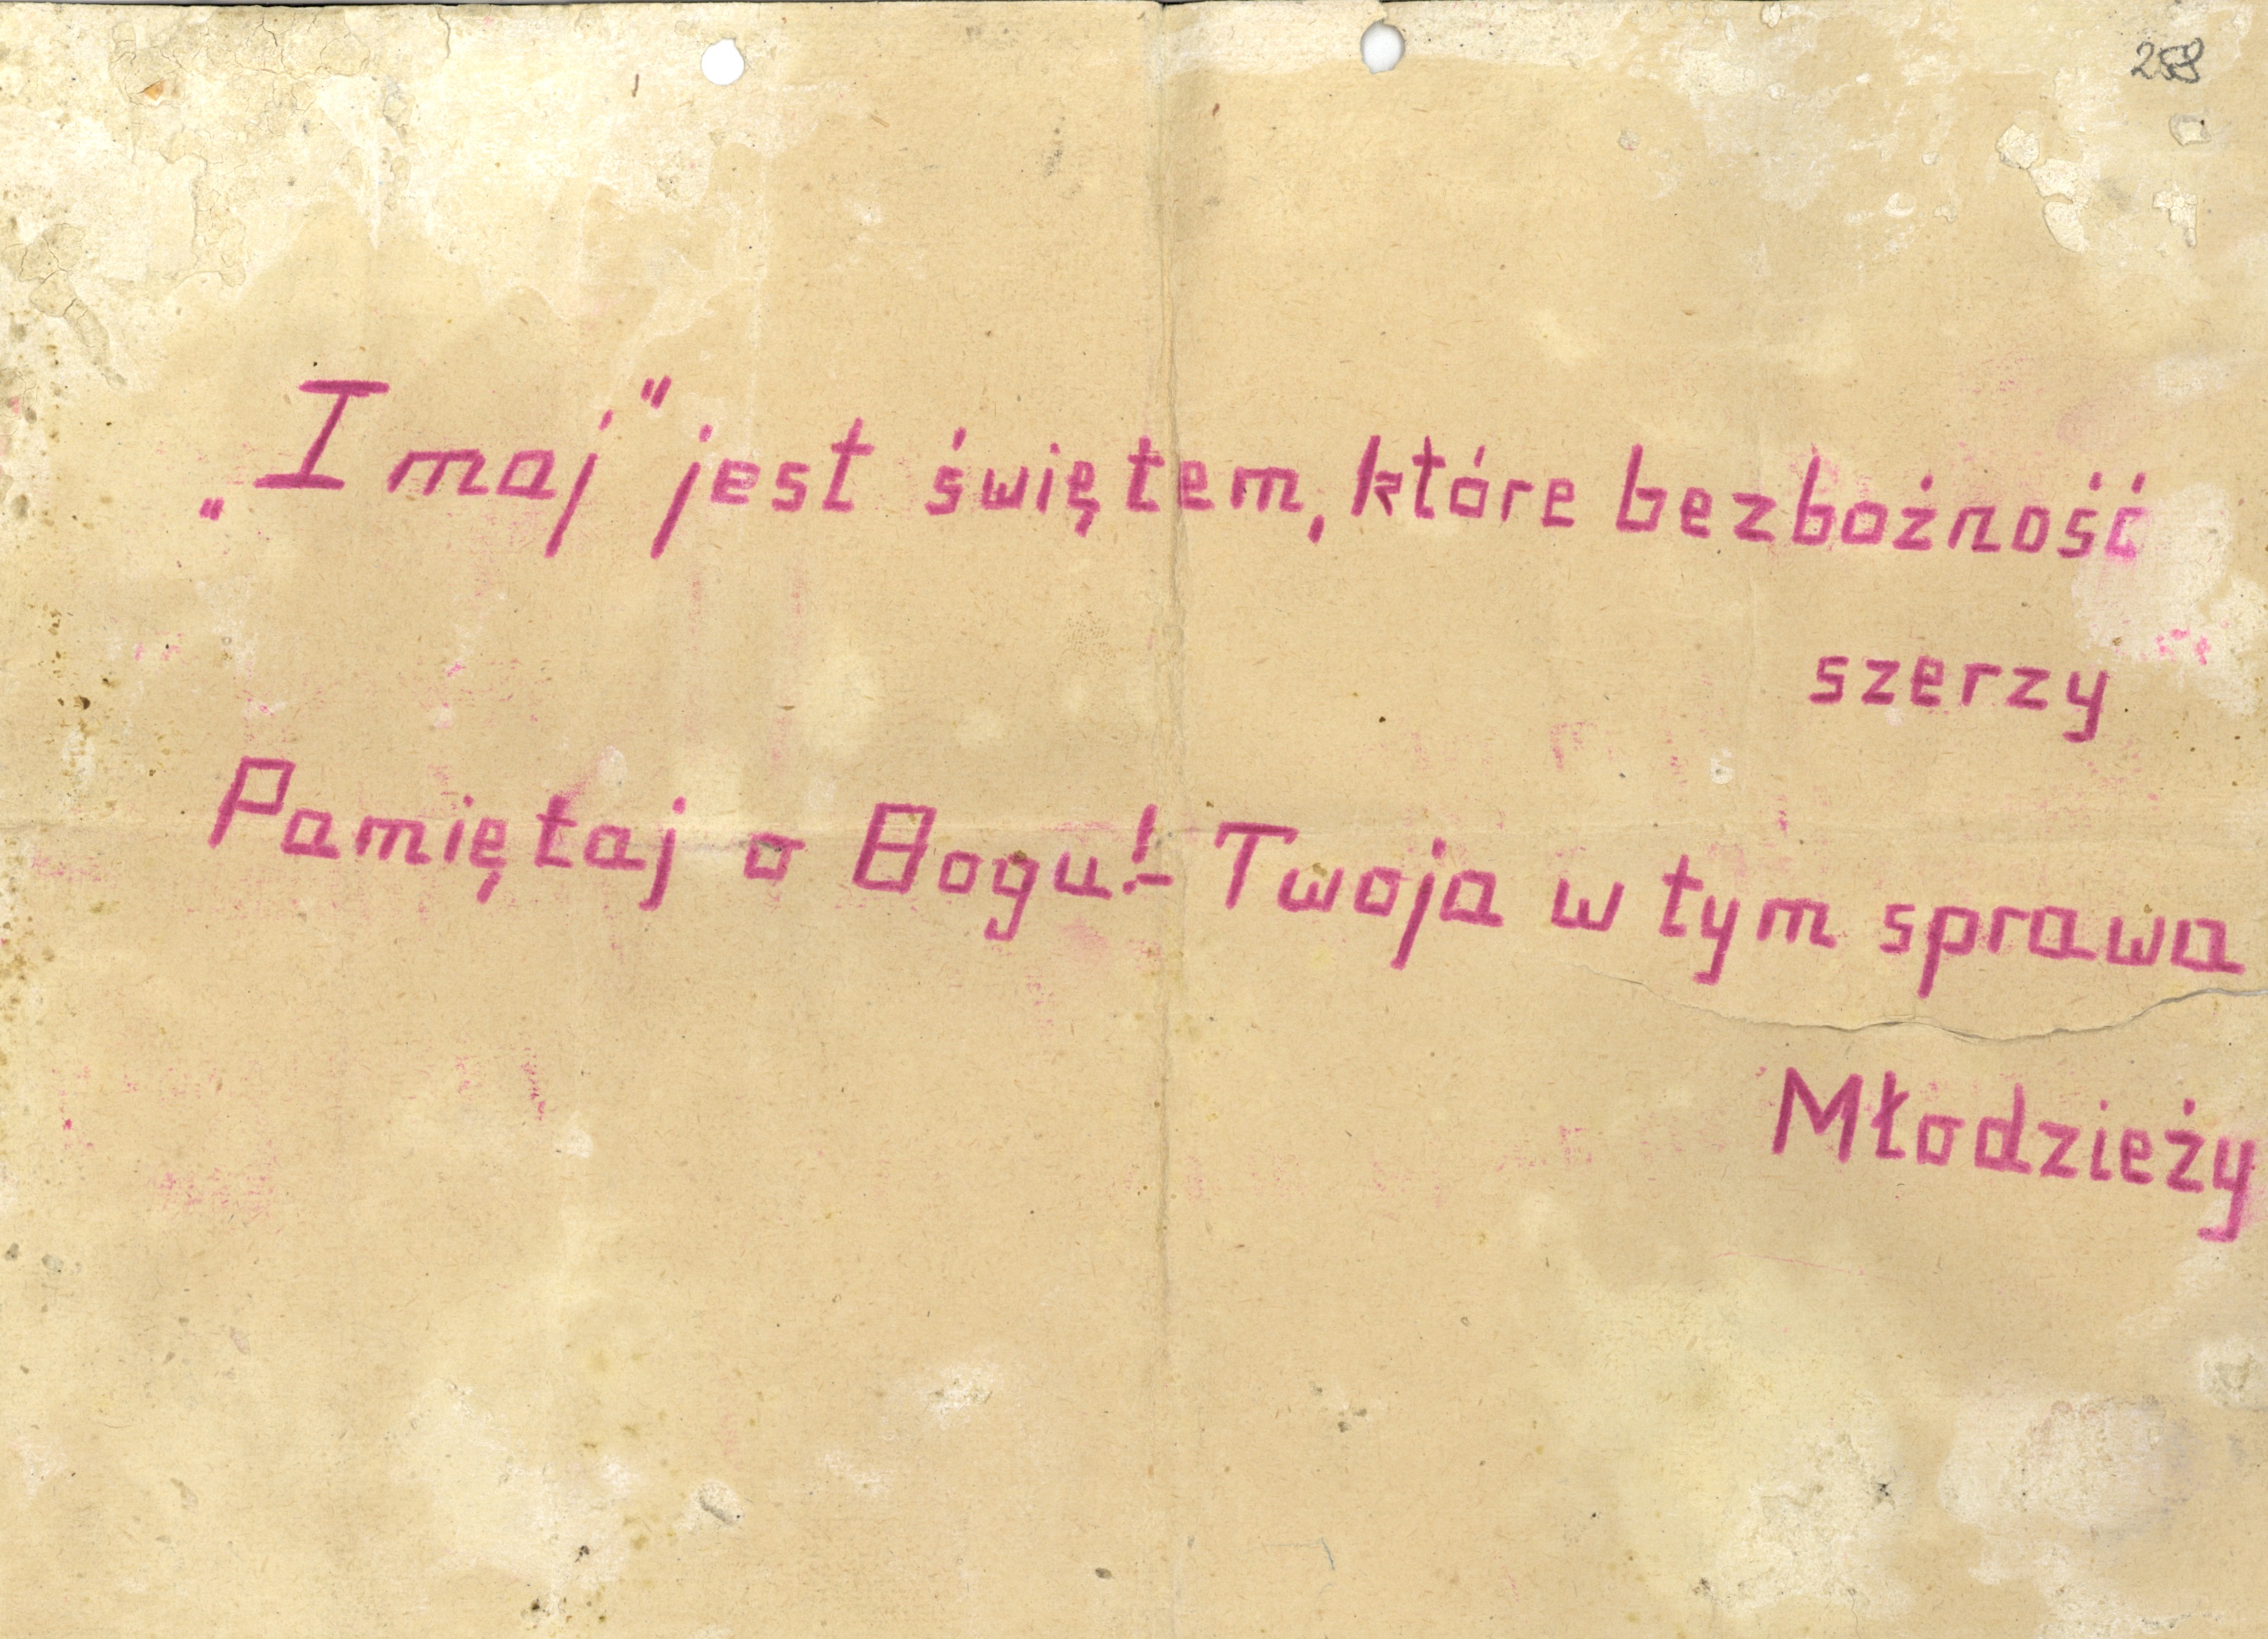 258
„I maj" jest świętem, które bezbożność
szerzy
Pamiętaj o Bogu!- Twoja w tym sprawa
Młodzieży